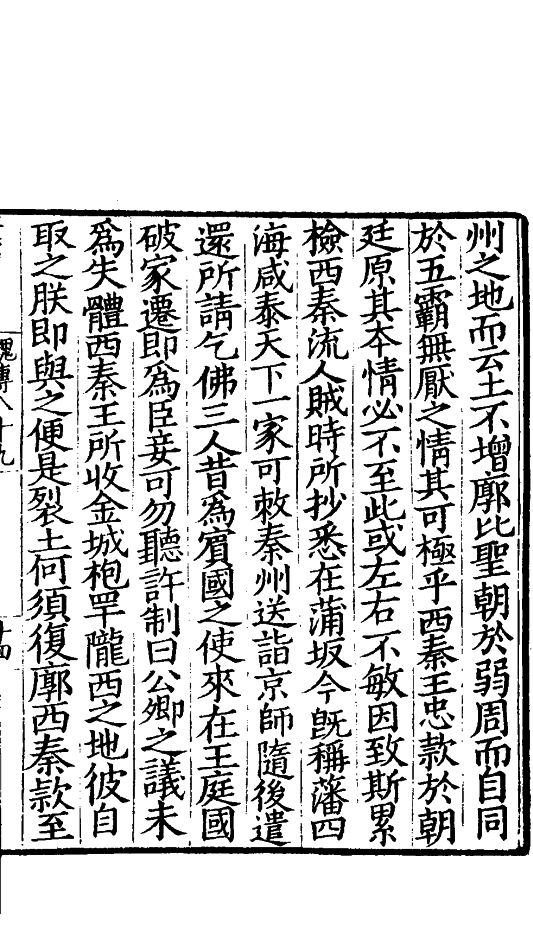 州之地而云土不增廓比聖朝於弱周而自同
於五霸無厭之情其可極乎西秦王忠款於朝
廷原其本情必不至此或左右不敏因致斯累
檢西秦流人賊時所抄悉在蒲坂今旣稱藩四
海咸泰天下一家可敕秦州送詣京師隨後遣
還所請乞佛三人昔爲賓國之使來在王庭國
破家遷即爲臣妾可勿聽許制曰公卿之議未
爲失體西秦王所收金城枹罕隴西之地彼自
取之朕即與之便是裂土何須復廓西秦款至
魏傳八十九
十四